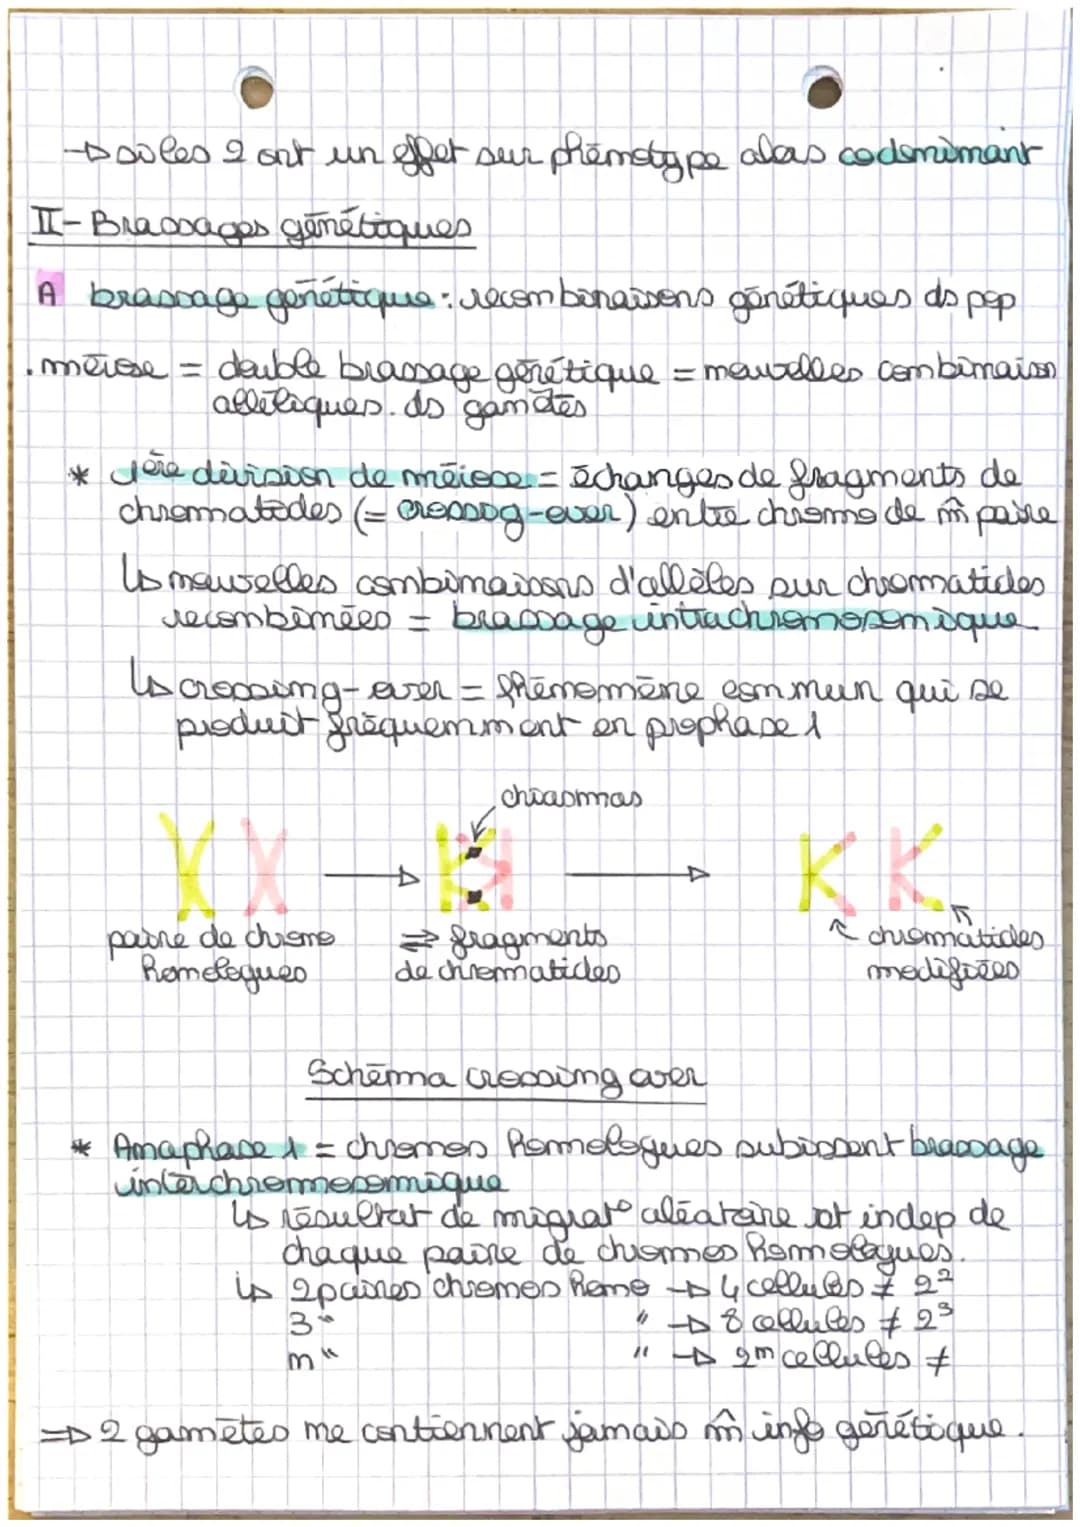 → si les 2 ont un effet sur phénotype alors codominant
II- Brassages génétiques
A brassage génétique : recombinaisons génétiques ds pop
. méiose = double brassage génétique = nouvelles combinaison
alléliques. ds gamètes
* 1ère division de méiose = échanges de fragments de
chromatodes (= crossog-over) entre chromo de m̂ paire
↳ nouvelles combinaisons d'allèles sur chromatides
recombinées = brassage intrachromosomique.
↳ crossing-over = phénomène commun qui se
produit fréquemment en prophase 1
chiasmas
paire de chromo
homologues
⇌ fragments
de chromatides
chromatides
modifiées
Schéma crossing over
* Anaphase 1 = chromos homologues subissent brassage
interchromosomique
↳ résultat de migrat° aléatoire et indep de
chaque paire de chromos homologues.
↳ 2 paires chromos homo → 4 cellules ≠ 2²
3 " " → 8 cellules ≠ 2³
n " " → 2n cellules ≠
⇒ 2 gamètes ne contiennent jamais m̂ info génétique.